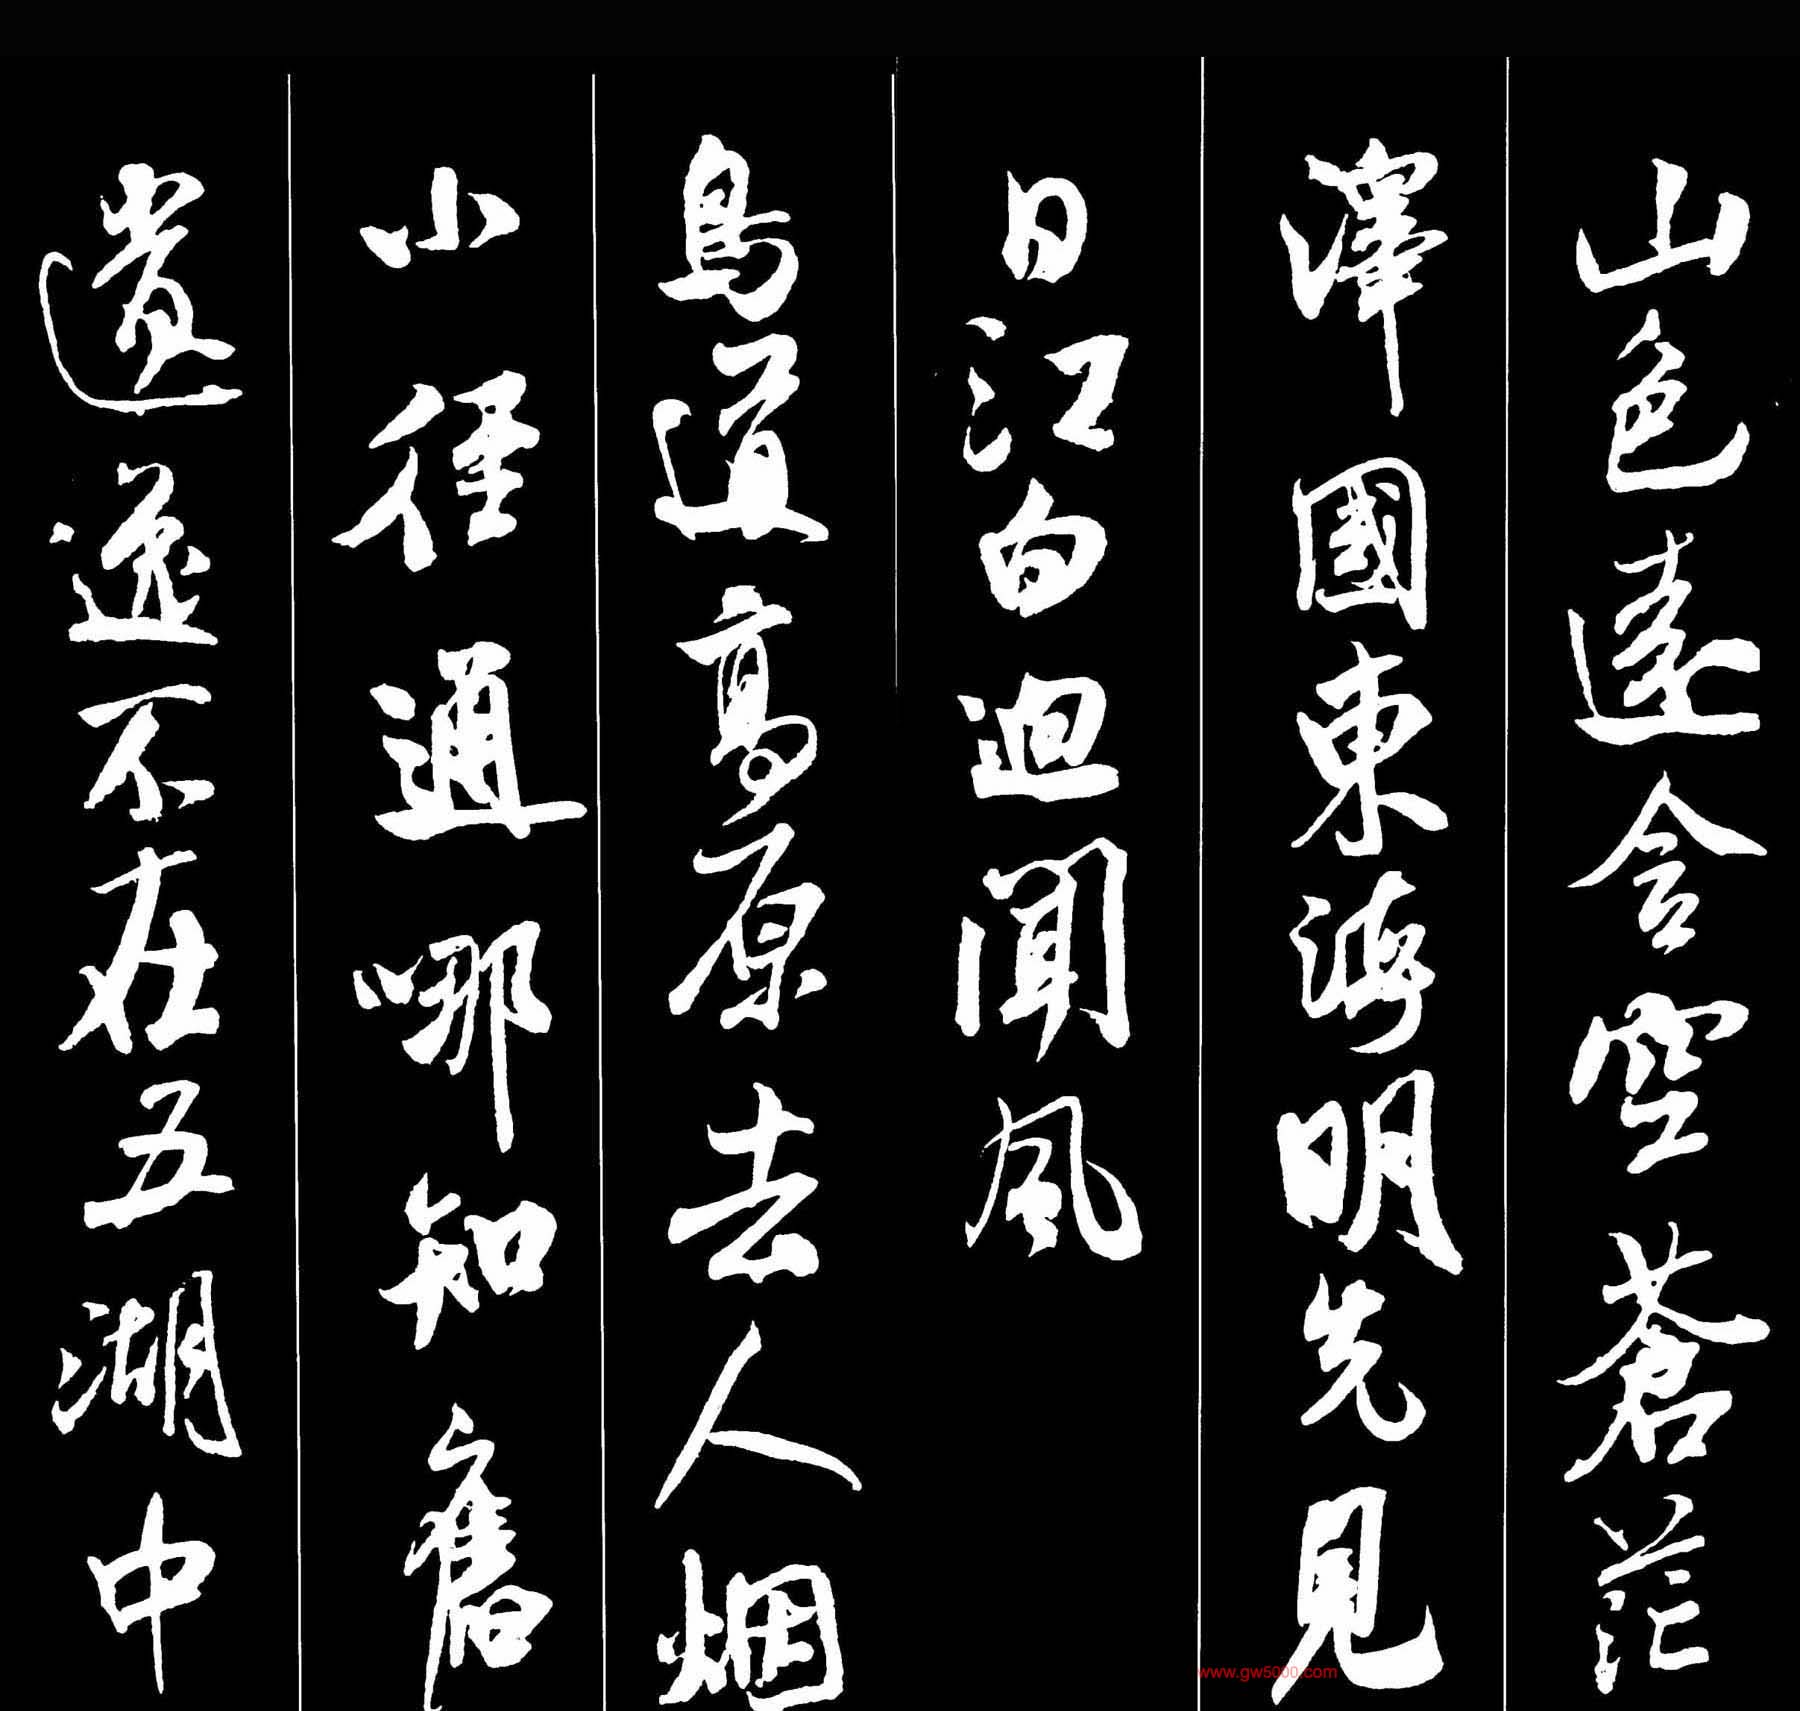 山色遠含空蒼茫
澤國東海明先見
日江白迥聞風
鳥道高原去人烟
小徑通哪知舊
遺逸不在五湖中
www.gw5000.com